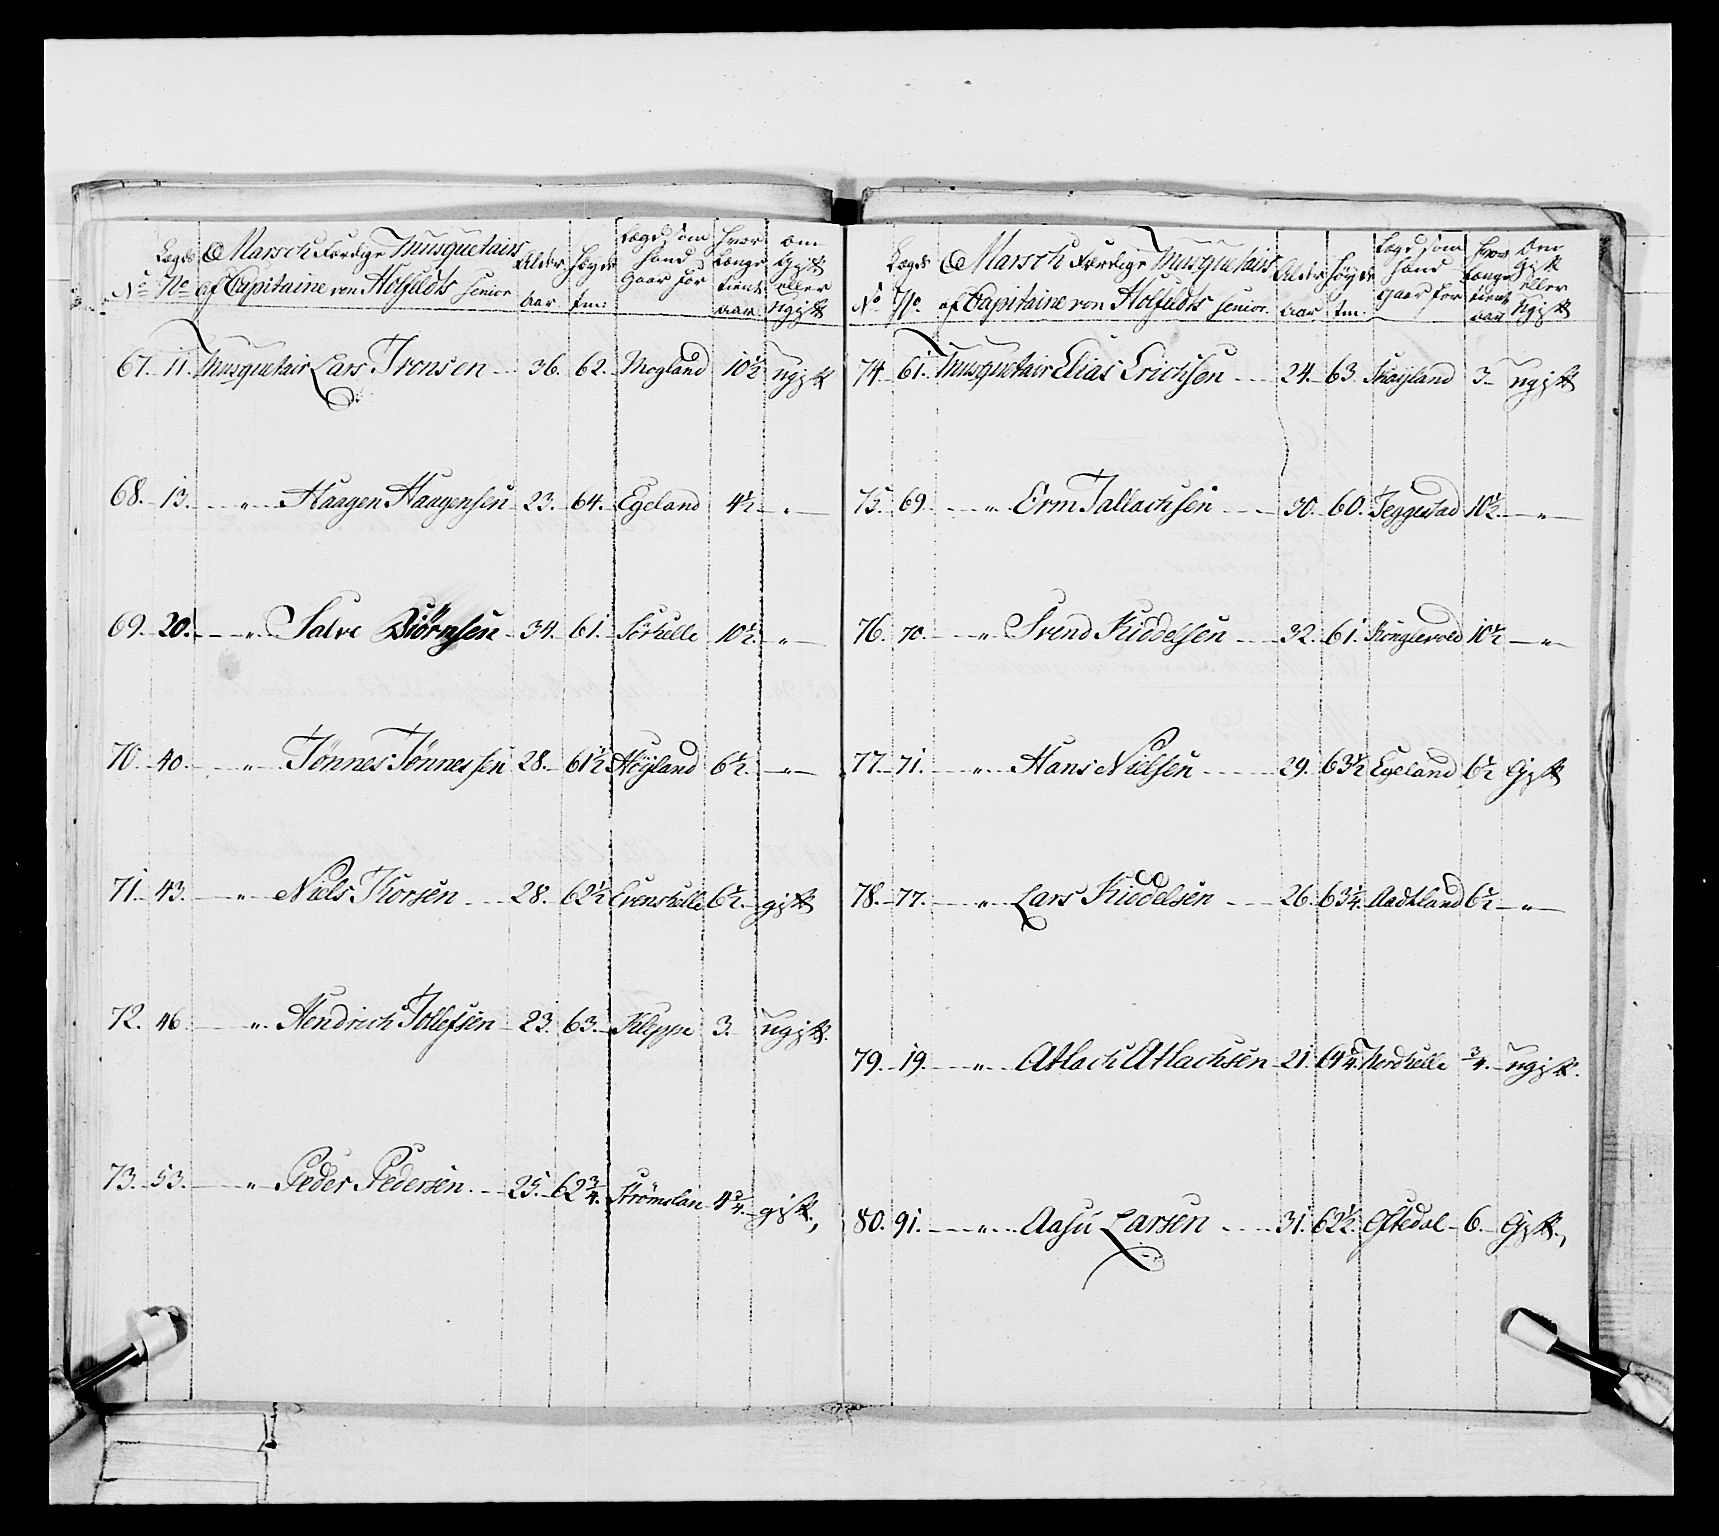 Lægds Marsch Færdige Musquetairs Alder Høyde Lægd som hand Gaar for hvor længe tient aar om Gift eller Ugift
No No af Capitaine von Holfeldts senior aar tm:
67. 11. Musquetair Lars Tronsen 36. 62. Mogland 10½ ugift
68. 13. " Haagen Haagensen 23. 64. Egeland 4½ "
69. 20. " Salve Biörnsen 34. 61. Sörhelle 10½ "
70. 40. " Tönnes Tönnessen 28. 61½ Höyland 6½ "
71. 43. " Niels Thorsen 28. 62½ Evenshelle 6½ gift
72. 46. " Hendrich Tollefsen 23. 63. Kleppe 3. ugift.
73. 53. " Peder Pedersen 25. 62¾. Strömslan 4¾. gift.,
Lægds Marsch Færdige Musquetairs Alder Høyde Lægd som hand gaar for hvor længe tient aar Om Gift eller Ugift
No No af Capitaine von Holfeldts senior. aar tm.
74. 61. Musquetair Elias Erichsen 24. 63. Skailand 3 ugift
75. 69. " Orm Tallachsen 30. 60. Jeggestad 10½ "
76. 70. " Svend Kiddelsen 32. 61. Konglevold 10½ "
77. 71. " Hans Nielsen 29. 63½ Egeland 6½ Gift
78. 77. " Lars Kiddelsen 26. 63¼. Aadtland 6½ "
79. 19. " Atlach Atlachsen 21. 64¼. Nordhelle ¾. ugift.
80. 91. " Aasu Larsen 31. 62½. Oftedal 6. Gift.,